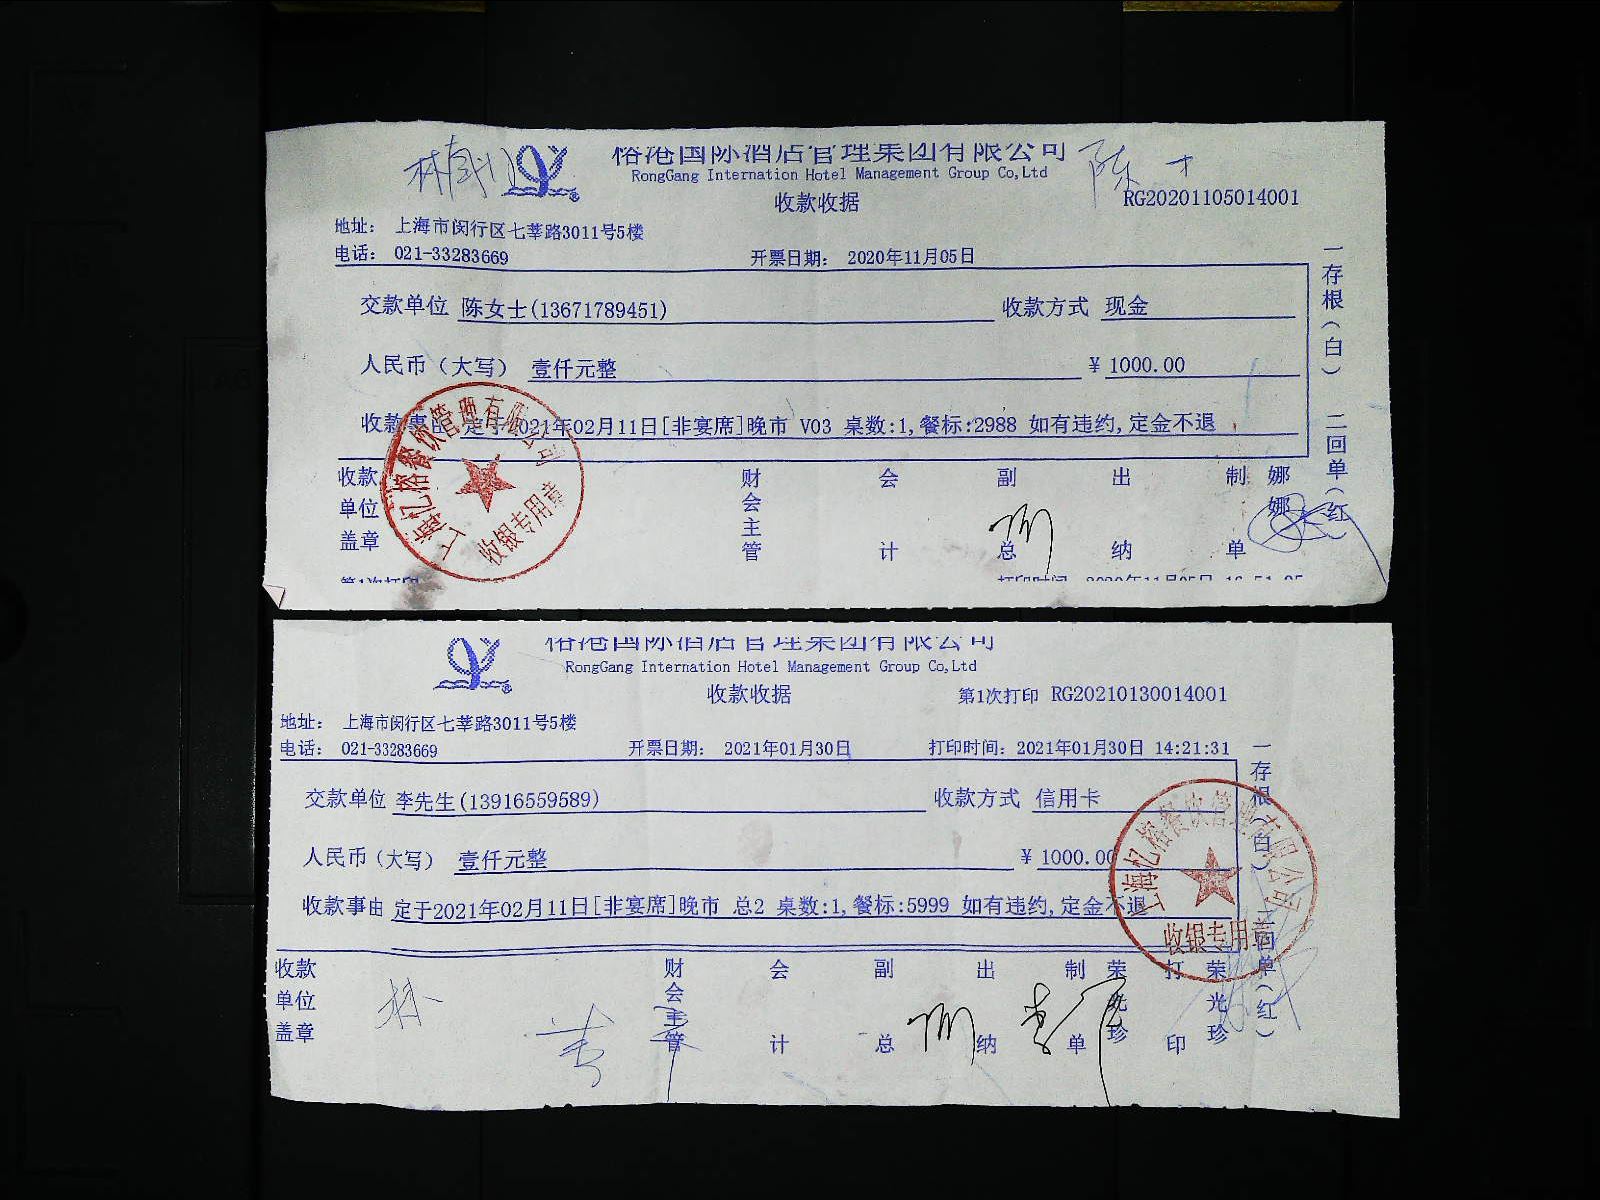 榕港国际酒店管理集团有限公司
RongGang Internation Hotel Management Group Co,Ltd
收款收据
RG20201105014001
地址： 上海市闵行区七莘路3011号5楼
电话： 021-33283669 开票日期： 2020年11月05日
交款单位 陈女士(13671789451) 收款方式 现金
人民币（大写） 壹仟元整 ¥ 1000.00
收款事由 定于2021年02月11日[非宴席]晚市 V03 桌数:1,餐标:2988 如有违约,定金不退
收款单位盖章 财会主管 会计 副总 出纳 制单 娜娜
一存根（白） 二回单（红）
上海忆榕餐饮管理有限公司
收银专用章
第1次打印 打印时间：2020年11月05日 16:51:05
榕港国际酒店管理集团有限公司
RongGang Internation Hotel Management Group Co,Ltd
收款收据
第1次打印 RG20210130014001
地址： 上海市闵行区七莘路3011号5楼
电话： 021-33283669 开票日期： 2021年01月30日 打印时间：2021年01月30日 14:21:31
交款单位 李先生(13916559589) 收款方式 信用卡
人民币（大写） 壹仟元整 ¥ 1000.00
收款事由 定于2021年02月11日[非宴席]晚市 总2 桌数:1,餐标:5999 如有违约,定金不退
收款单位盖章 财会主管 会计 副总 出纳 制单 荣光珍 打印 荣光珍
一存根（白） 二回单（红）
上海忆榕餐饮管理有限公司
收银专用章